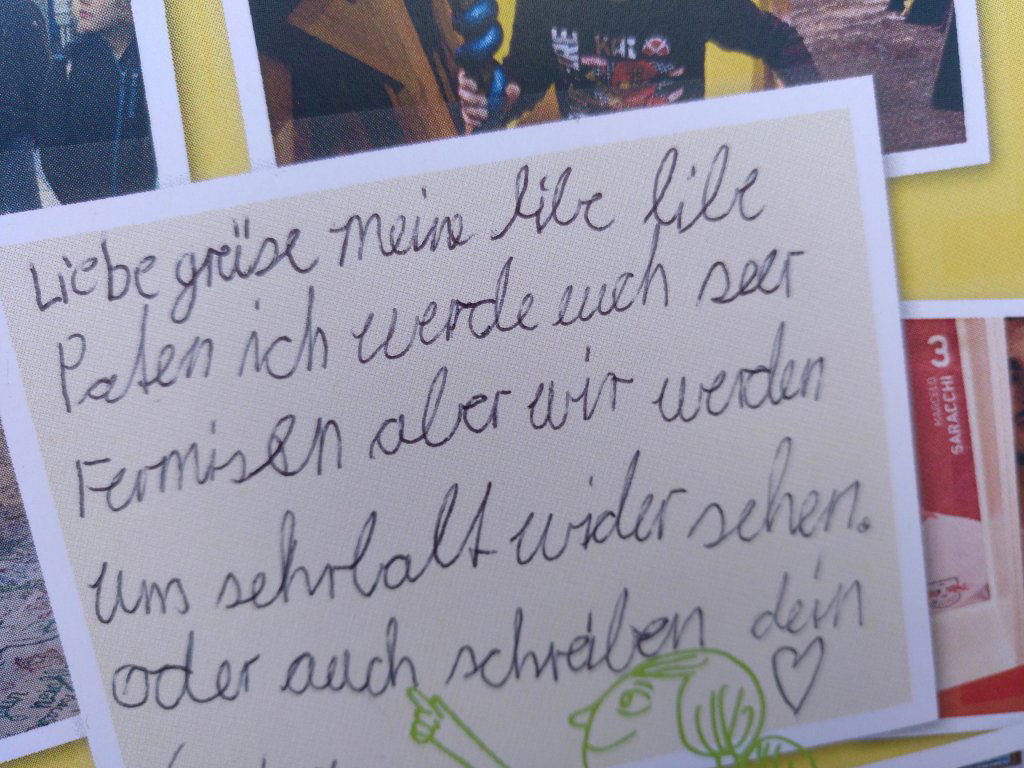 Liebe gräüse meine libe libe
Paten ich werde euch seer
Fermisen aber wir werden
uns sehrbalt wider sehen.
oder auch schreiben dein
KAI
MARCELO
SARACCHI
3